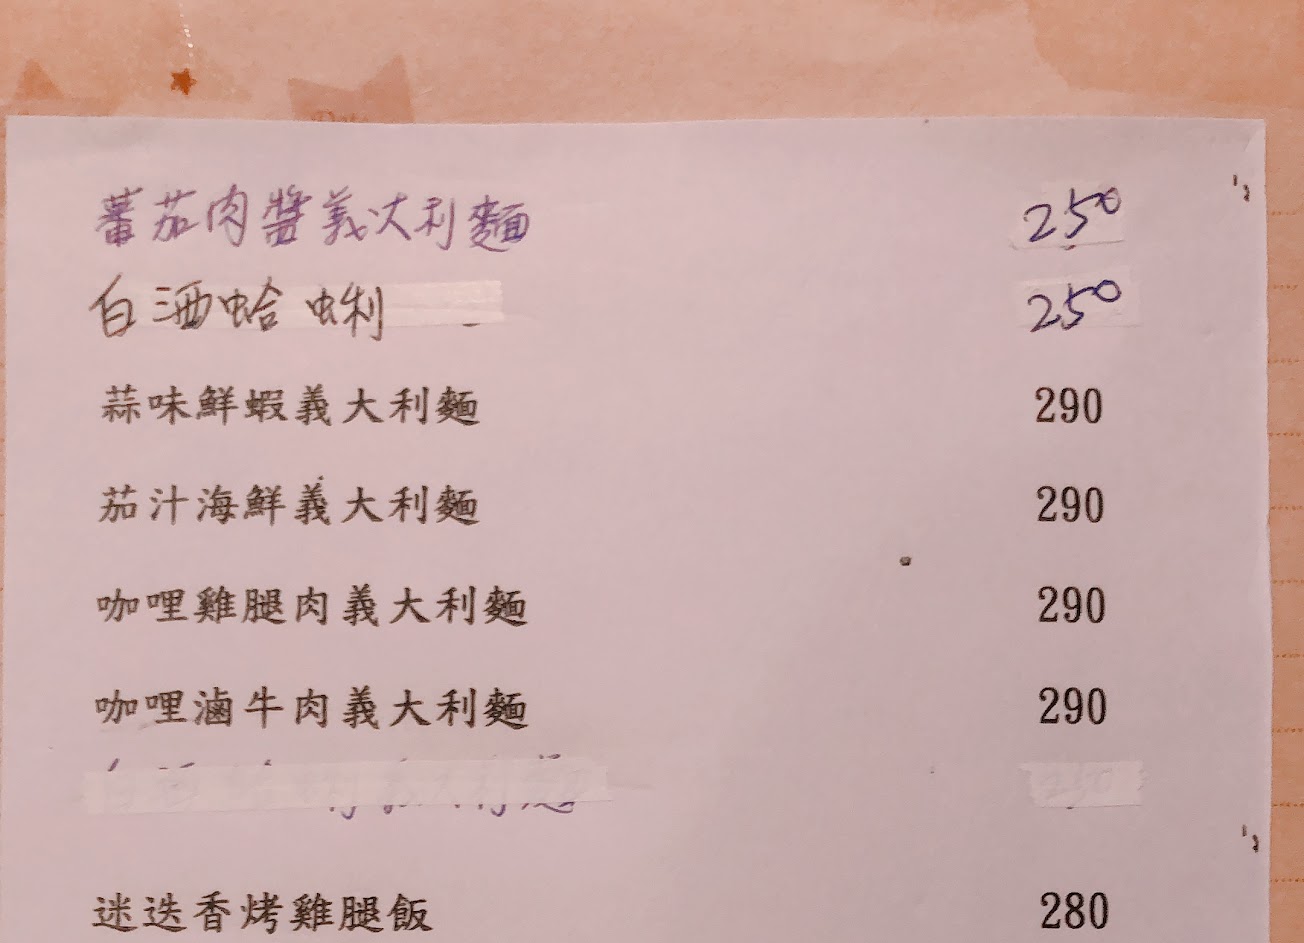 蕃茄肉醬義大利麵 250
白酒蛤蜊 250
蒜味鮮蝦義大利麵 290
茄汁海鮮義大利麵 290
咖哩雞腿肉義大利麵 290
咖哩滷牛肉義大利麵 290
迷迭香烤雞腿飯 280